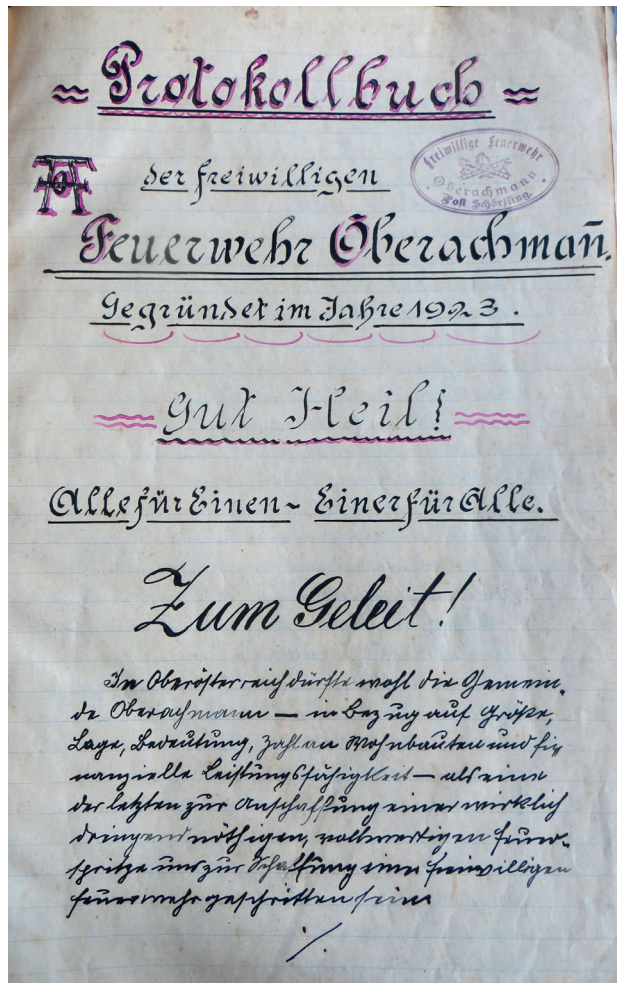 Protokollbuch
der freiwilligen
Freiwillige Feuerwehr
Oberachmann
Post Schörfling
Feuerwehr Oberachman̄.
Gegründet im Jahre 1923.
Gut Heil!
Alle für Einen - Einer für Alle.
Zum Geleit!
In Oberösterreich dürfte wohl die Gemein-
de Oberachmann — in bezug auf Größe,
Lage, Bedeutung, Zahl an Wohnbauten und fi-
nanzielle Leistungsfähigkeit — als eine
der letzten zur Anschaffung einer wirklich
dringend nöthigen, vollwertigen Feuer-
spritze und zur Schaffung einer freiwilligen
Feuerwehr geschritten sein.
./.